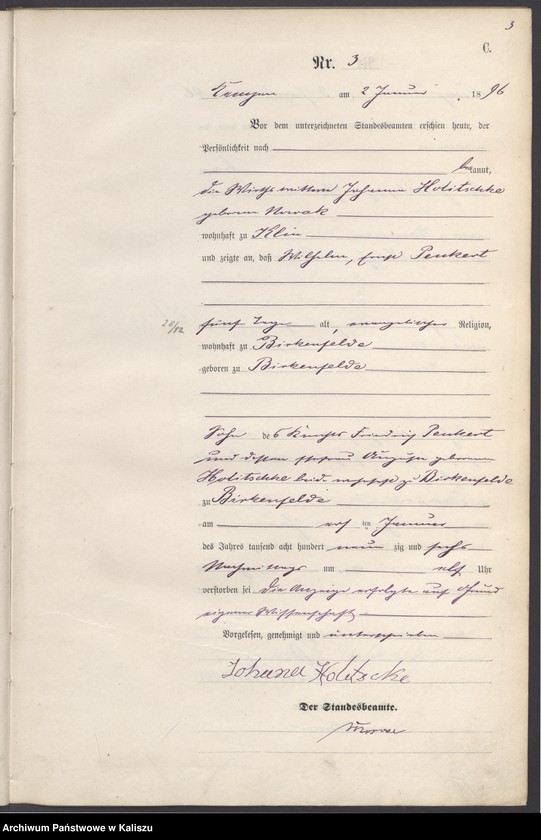 3
C.
Nr. 3
Kempen am 2 Januar 1896
Vor dem unterzeichneten Standesbeamten erschien heute, der
Persönlichkeit nach
bekannt,
die Wirthswittwe Johanna Holitschke
geborene Nowak
wohnhaft zu Klin
und zeigte an, daß Wilhelm, Peukert
28/12 fünf Tage alt, evangelischer Religion,
wohnhaft zu Birkenfelde
geboren zu Birkenfelde
Sohn des Friedrich Peukert
und dessen Ehefrau Auguste geborene
Holitschke beide wohnhaft zu Birkenfelde
zu Birkenfelde
am ersten Januar
des Jahres tausend acht hundert neun zig und sechs
Nachmittags um elf Uhr
verstorben sei. Die Anzeige erfolgte auf Grund
eigener Wissenschaft
Vorgelesen, genehmigt und unterschrieben
Johana Holitscke
Der Standesbeamte.
Archiwum Państwowe w Kaliszu